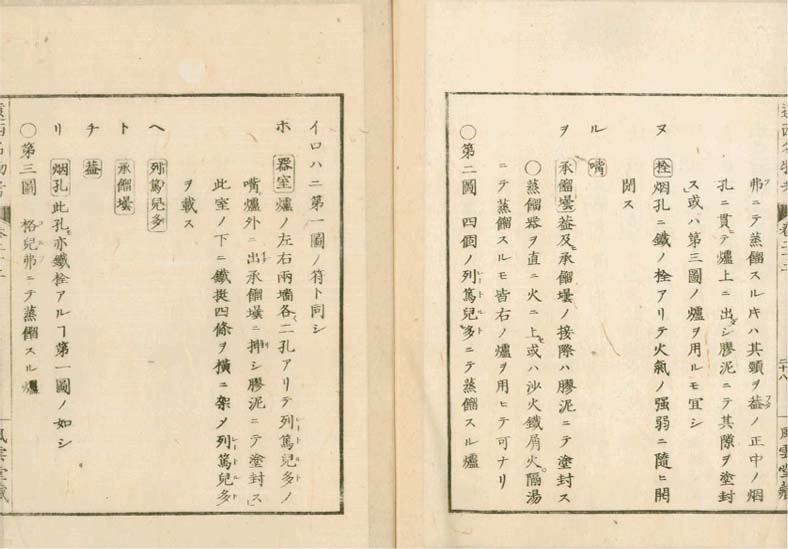 遠西名物考 卷二十二 二十八 風雲堂藏
弗ニテ蒸餾スル片ハ其頸ヲ葢ノ正中ノ烟
孔ニ貫テ爐上ニ出シ膠泥ニテ其隙ヲ塗封
ス或ハ第三圖ノ爐ヲ用ルモ宜シ
ヌ 栓 烟孔ニ鐵ノ栓アリテ火氣ノ强弱ニ隨ヒ開
閉ス
ル 嘴
ヲ 承餾壜 葢及承餾壜ノ接際ハ膠泥ニテ塗封ス
○蒸餾器ヲ直ニ火ニ上セ或ハ沙火鐵屑火隔湯
ニテ蒸餾スルモ皆右ノ爐ヲ用ヒテ可ナリ
○第二圖 四個ノ列篤兒多ニテ蒸餾スル爐
イロハニ第一圖ノ符ト同シ
ホ 器室 爐ノ左右兩墻各二孔アリテ列篤兒多ノ
嘴爐外ニ出承餾壜ニ挿シ膠泥ニテ塗封ス
此室ノ下ニ鐵挺四條ヲ橫ニ架メ列篤兒多
ヲ載ス
ヘ 列篤兒多
ト 承餾壜
チ 葢
リ 烟孔 此孔亦鐵栓アルヿ第一圖ノ如シ
○第三圖 格兒弗ニテ蒸餾スル爐
遠西名物考 卷二十二 風雲堂藏